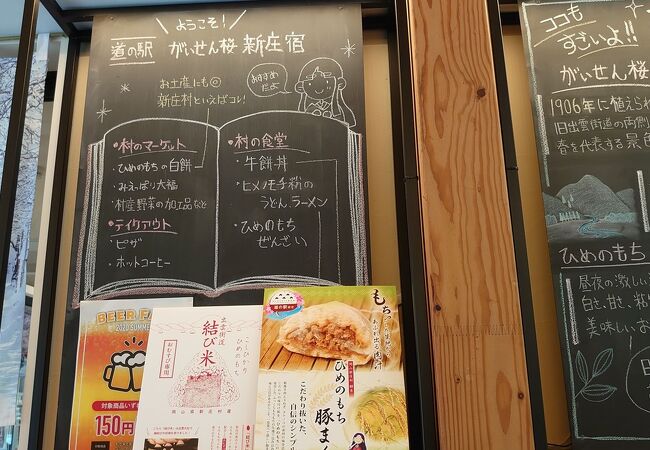 ようこそ!
道の駅 がいせん桜 新庄宿
お土産にも◎
新庄村といえばコレ!
おすすめ
だよ
•村のマーケット
・ひめのもちの白餅
・みえっぱり大福
・村産野菜の加工品など
•テイクアウト
・ピザ
・ホットコーヒー
•村の食堂
・牛餅丼
・ヒメノモチ粉の
うどん、ラーメン
・ひめのもち
ぜんざい
ココも
すごいよ!!
がいせん桜
1906年に植えられ
旧出雲街道の両側
春を代表する景色
ひめのもち
昼夜の激しい
白さ、甘さ、粘
美味しいお
BEER FA
2020 SUMMER
対象商品いずれ
150円
出雲街道
結び米
こしひかり
ひめのもち
おむすび専用
岡山県新庄村産
もち
ひめのもち
豚まん
こだわり抜いた、
自信のシンプル